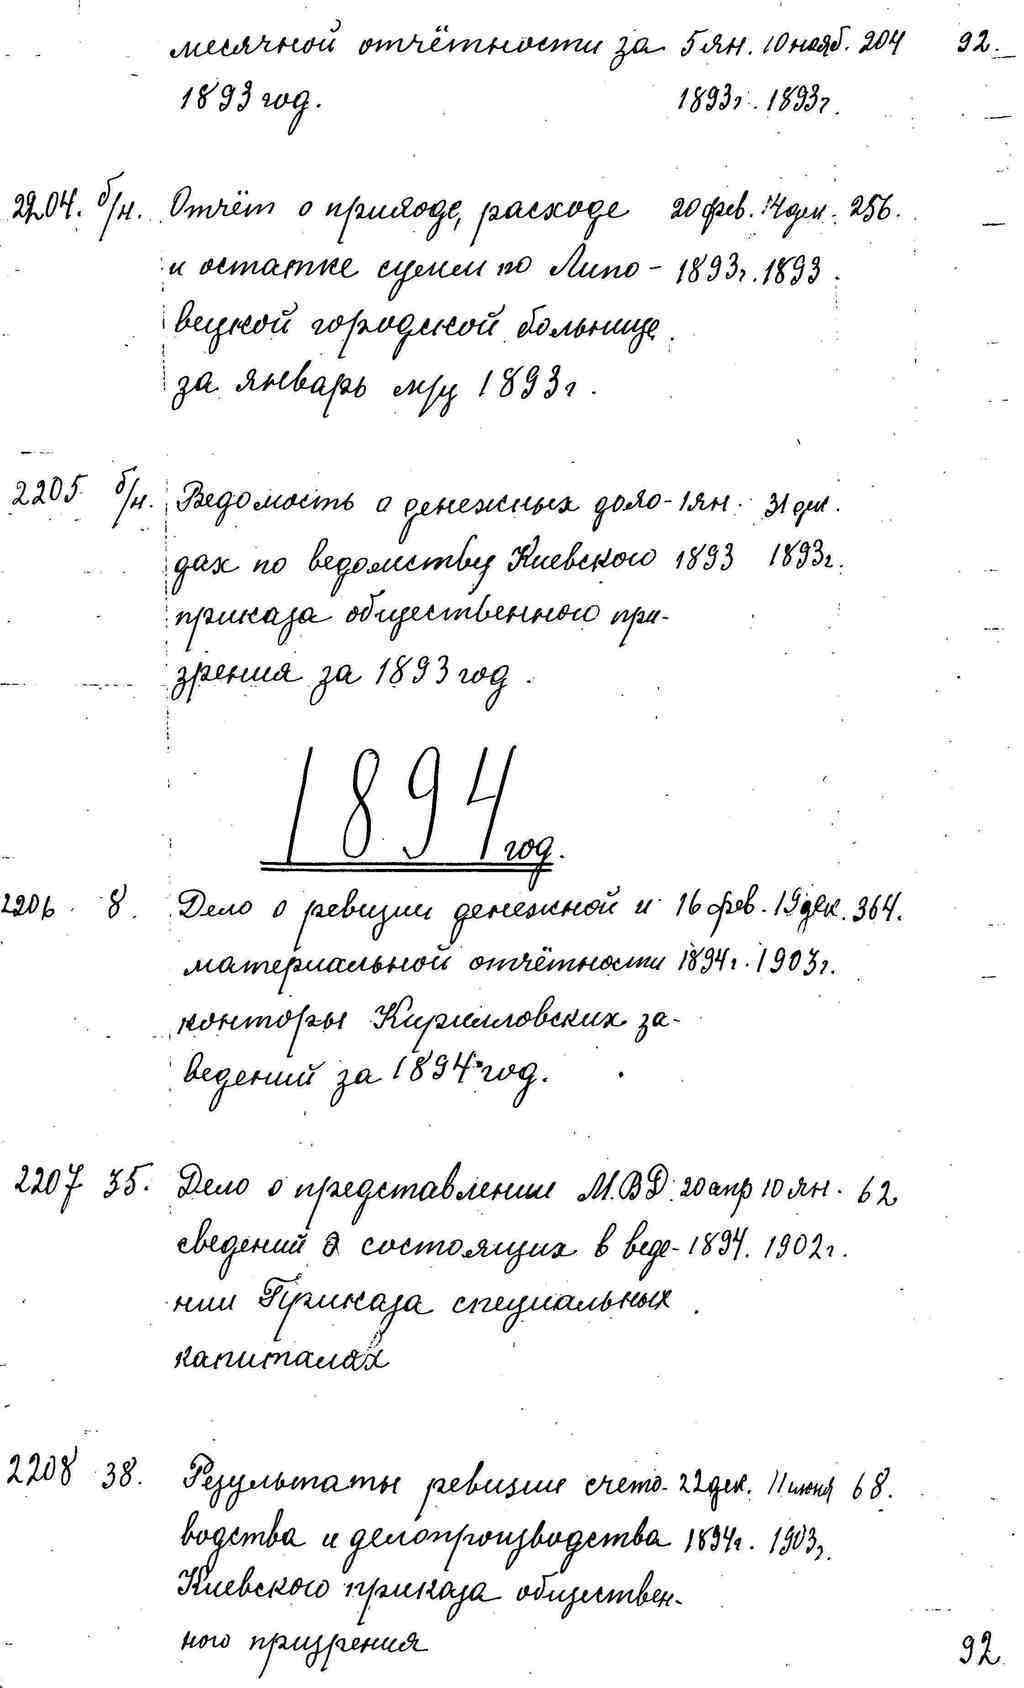 месячной отчётности за 5 ян. 10 нояб. 204 92.
1893 год. 1893 г. 1893 г.
2204. б/н. Отчёт о приходе, расходе 20 фев. 14 дек. 256.
и остатке сумм по Липо- 1893 г. 1893
вецкой городской больнице
за январь м/ц 1893 г.
2205 б/н. Ведомость о денежных дохо- 1 ян. 31 дек.
дах по ведомству Киевского 1893 1893 г.
приказа общественного при-
зрения за 1893 год.
1894 год.
2206 8. Дело о ревизии денежной и 16 фев. 19 дек. 364.
материальной отчётности 1894 г. 1903 г.
конторы Кирилловских за-
ведений за 1894 год.
2207 35. Дело о представлении М.ВД. 20 апр 10 ян. 62
сведений о состоящих в веде- 1894. 1902 г.
нии Приказа специальных
капиталах
2208 38. Результаты ревизии счето- 22 дек. 11 июня 68.
водства и делопроизводства 1894 г. 1903 г.
Киевского приказа обществен-
ного призрения
92